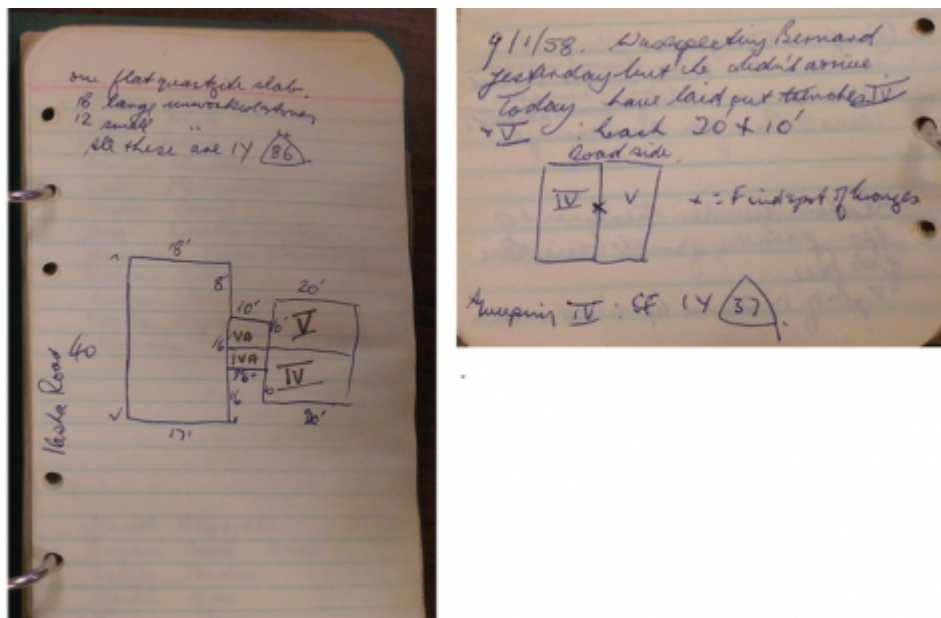 one flat quartzite slab.
18 large unworked stones
12 small "
All these are IY 86
18'
8'
10'
20'
10'
V
VA
16
IVA
IV
40
16
20'
17'
Ilesha Road
9/1/58. Was expecting Bernard
yesterday but he didn't arrive
Today have laid out trenches IV
+ V : each 20' x 10'
Road side.
IV V x = Findspot of bronzes
Sweeping IV : SF IY 37